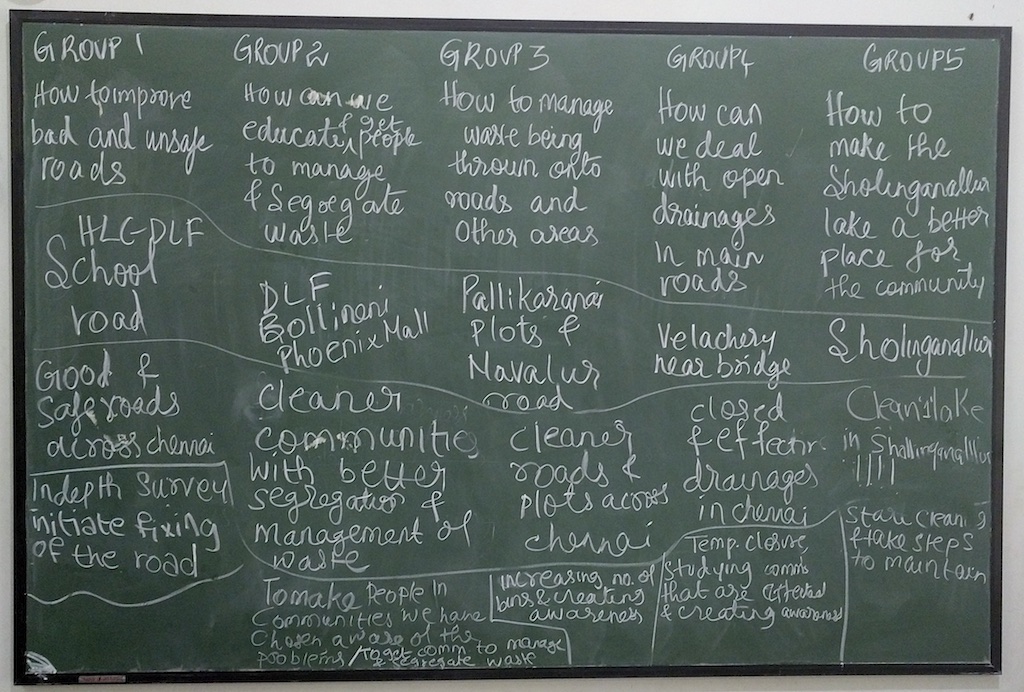 GROUP 1
How to improve
bad and unsafe
roads
HLC-DLF
School
road
Good &
Safe roads
across chennai
indepth survey
initiate fixing
of the road
GROUP 2
How can we
& get
educate people
to manage
& Segregate
waste
DLF
Bollineni
Phoenix Mall
cleaner
communities
with better
segregation &
management of
waste
To make People In
Communities we have
chosen aware of the
problems / to get comm to manage
& segregate waste
GROUP 3
How to manage
waste being
thrown onto
roads and
other areas
Pallikaranai
plots &
Navalur
road
cleaner
roads &
plots across
chennai
increasing no. of
bins & creating
awareness
GROUP 4
How can
we deal
with open
drainages
In main
roads
Velachery
near bridge
closed
& effectiv
drainages
in chennai
Temp. closure,
Studying comm
that are affected
& creating awareness
GROUP 5
How to
make the
Sholinganallur
lake a better
place for
the community
Sholinganallur
Clean lake
in Shallinganalllur
!!!!
Start cleani g
& take steps
to maintain